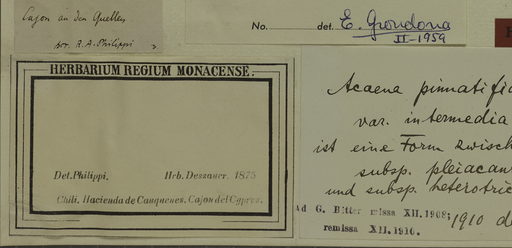 Cajon an den Quellen
No. det. E. Grondona
por. R. A. Philippi
II-1959
HERBARIUM REGIUM MONACENSE.
Acaena pinnatifid
var. intermedia
ist eine Form zwisch
subsp. pleiacan
und subsp. heterotric
Det. Philippi. Hrb. Dessauer. 1875
Chili. Hacienda de Cauquenes. Cajon del Cypres.
ad G. Bitter missa XII. 1908; 1910 d
remissa XII. 1910.